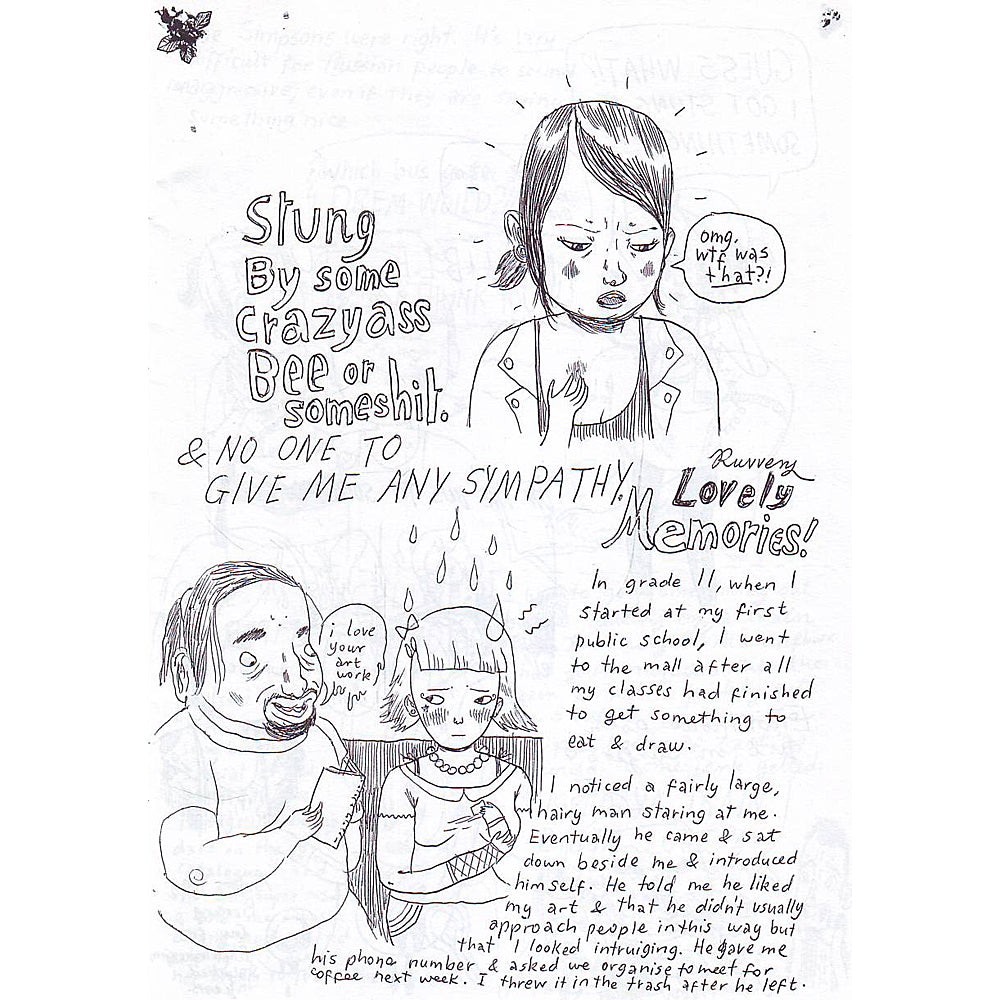 Stung
By some
crazyass
Bee or
someshit.
omg.
wtf was
that?!
& NO ONE TO
GIVE ME ANY SYMPATHY.
Lovely
Memories!
i love
your
art
work
In grade 11, when I
started at my first
public school, I went
to the mall after all
my classes had finished
to get something to
eat & draw.
I noticed a fairly large,
hairy man staring at me.
Eventually he came & sat
down beside me & introduced
himself. He told me he liked
my art & that he didn't usually
approach people in this way but
that I looked intruiging. He gave me
his phone number & asked we organise to meet for
coffee next week. I threw it in the trash after he left.